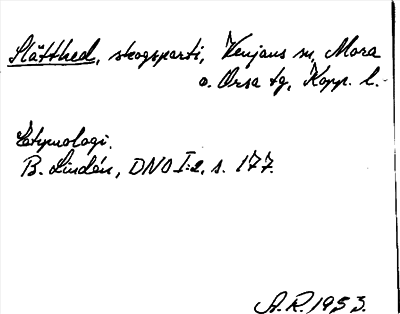 Slätthed, skogsparti, Venjans sn, Mora
o. Orsa tg, Kopp. l.
Etymologi.
B. Lindén, DNO I:2, s. 177.
A.R. 1953.